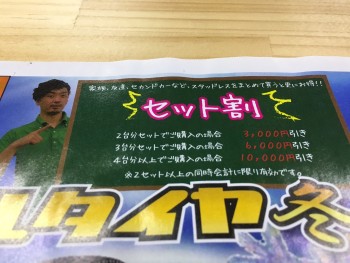 家族、友達、セカンドカーなど、スタッドレスをまとめて買うと更にお得!!
セット割
2台分セットでご購入の場合 3,000円引き
3台分セットでご購入の場合 6,000円引き
4台分以上でご購入の場合 10,000円引き
※2セット以上の同時会計に限り有効です。
タイヤ冬